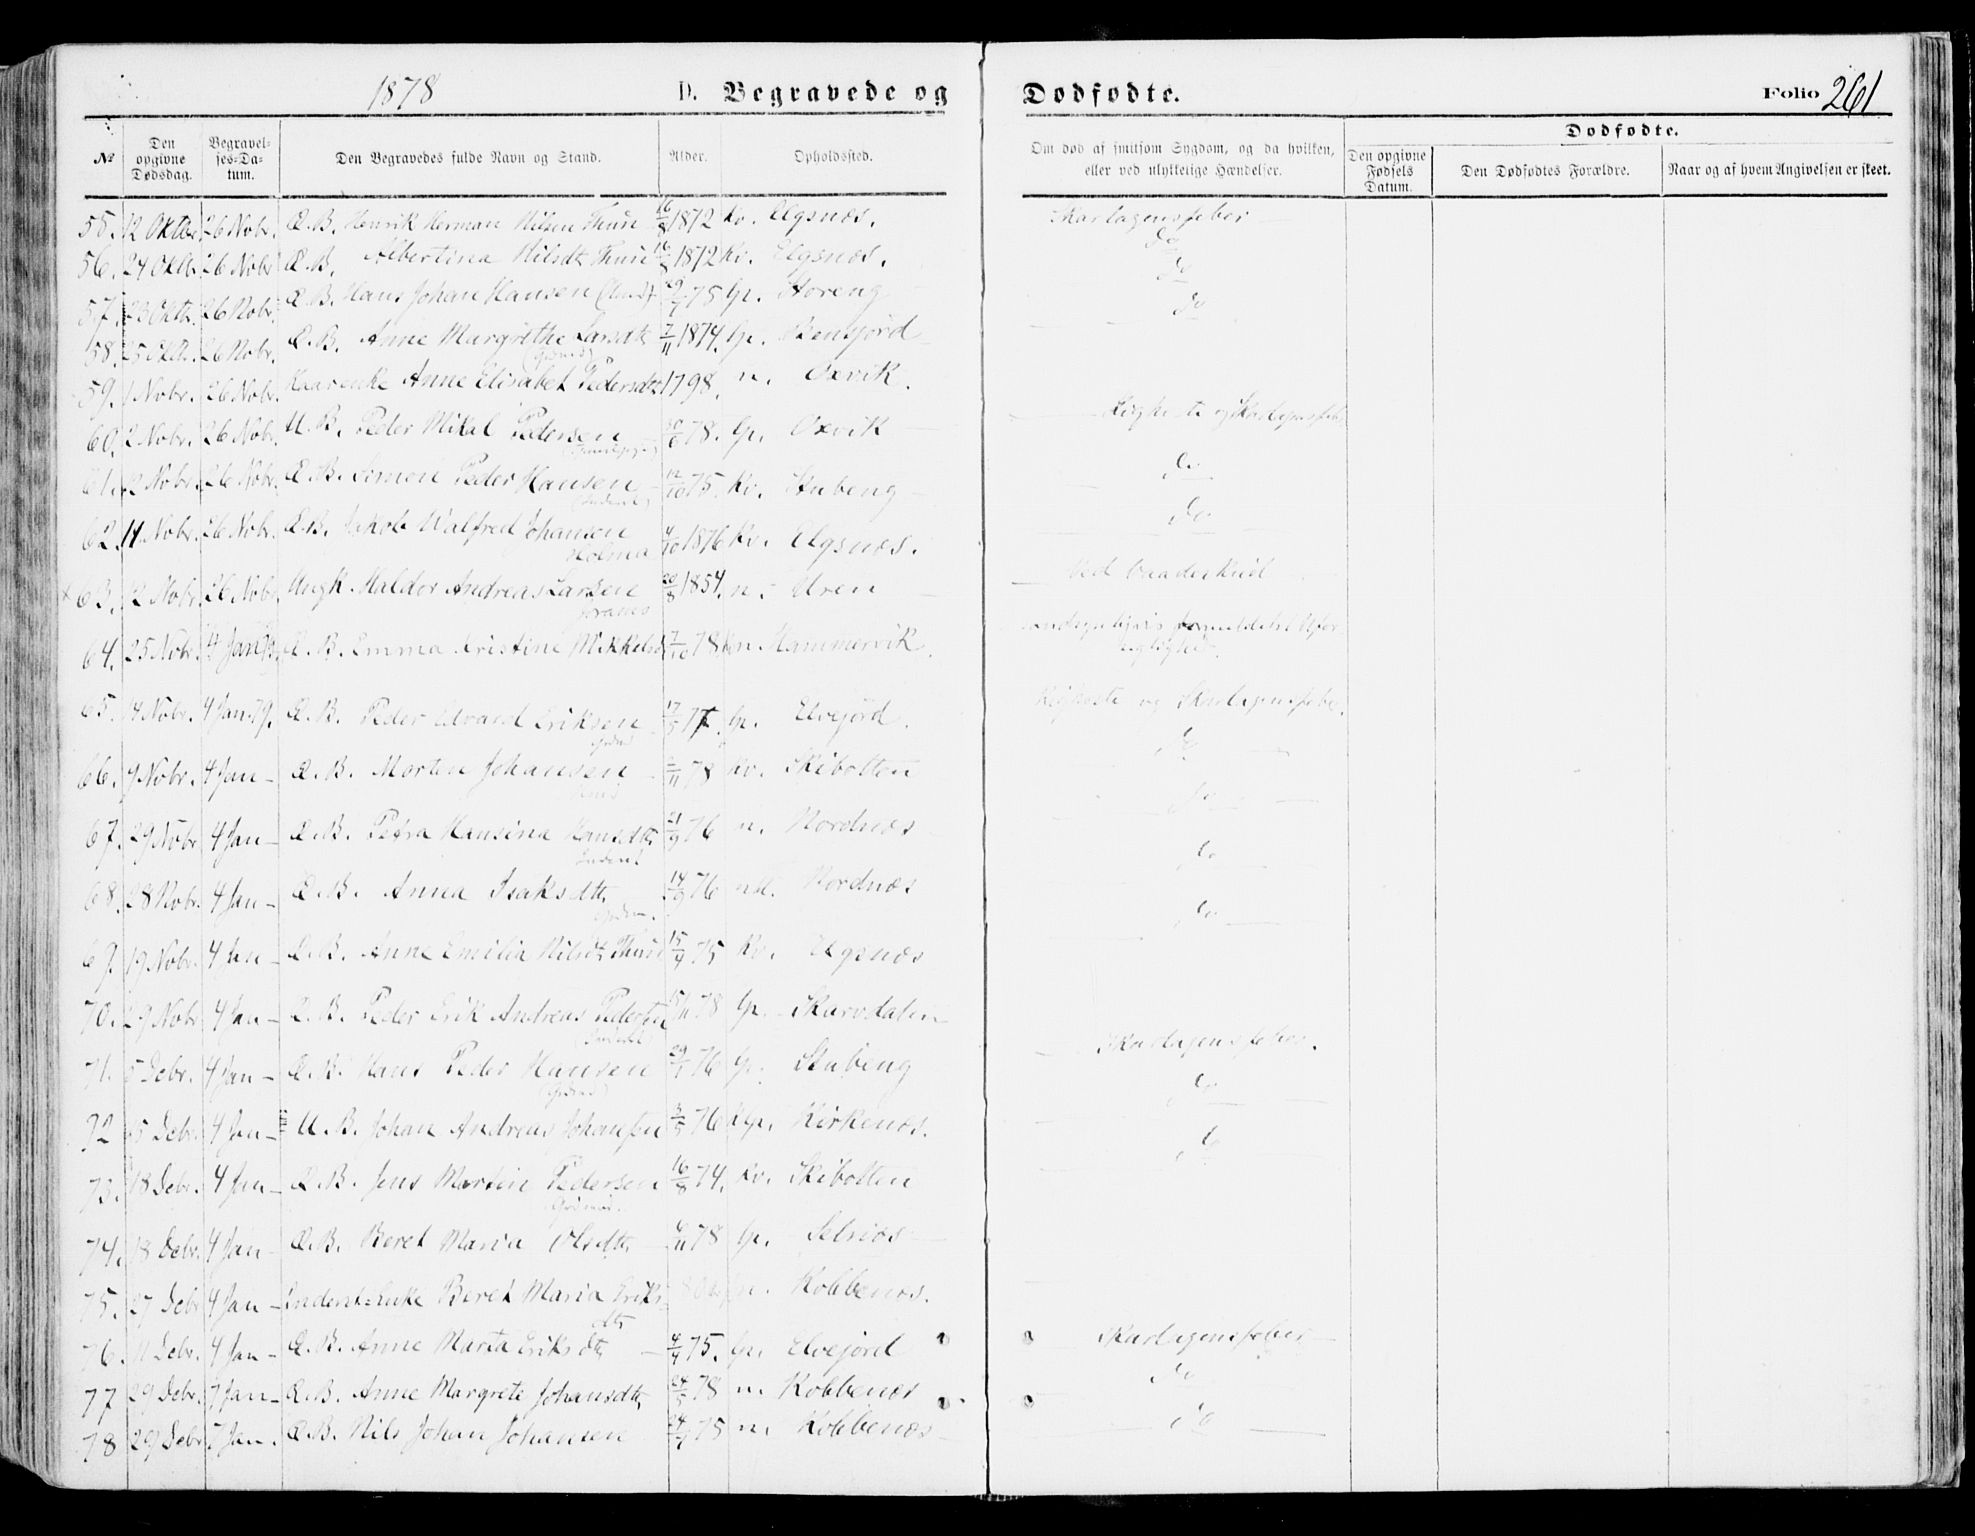 1878 D. Begravede og
Dødfødte. Folio 261
№ Den opgivne Dødsdag. Begravelses-Datum. Den Begravedes fulde Navn og Stand. Alder. Opholdssted.
Om død af smitsom Sygdom, og da hvilken, eller ved ulykkelige Hændelser. Dødfødte. Den opgivne Fødsels Datum. Den Dødfødtes Forældre. Naar og af hvem Angivelsen er skeet.
55. 12 Oktbr 26 Nobr. Æ. B. Henrik Herman Nilsen Thuri 16/8 1872 Kv. Elgsnæs. Skarlagensfeber
56. 24 Oktb. 26 Nobr Æ. B. Albertina Nilsdtr Thuri 16/8 1872 Kv. Elgsnæs. do
57. 23 Oktb. 26 Nobr. Æ. B. Hans Johan Hansen 75 Gp. Storeng do
58. 25 Oktb. 26 Nobr. Æ. B. Anne Margrethe Larsdtr 7/11 1874. Gp. Stensfjord do
59. 1 Nobr. 26 Nobr. Kaarenke Anne Elisabet Pedersdtr 1798. n. Oxvik.
60. 2 Nobr. 26 Nobr. U. B. Peder Mikal Pedersen 78. Gp. Oxvik og Skarlagensfeber
61. 2 Nobr. 26 Nobr. Æ. B. Simon Peder Hansen 12/10 75. Kv. Stubeng do
62. 11. Nobr. 26 Nobr. Æ. B. Jakob Walfred Johansen Holma 4/10 1876 Kv. Elgsnæs. do
63. 12 Nobr. 26 Nobr. Ungk. Haldor Andreas Larsen 20/8 1854. n. Uren Ved baadeskud
64. 25 Nobr. 4 Jan 79. Æ. B. Emma Kristine Mikkelsd 7/10 78 Hammervik.
65. 14 Nobr. 4 Jan. 79. Æ. B. Peder Edvard Eriksen 17/5 77. Gp. Elvejord. Kighoste og Skarlagensfeber.
66. 9 Nobr. 4 Jan - Æ. B. Morten Johansen /11 78 Kv. Skibotten do
67. 29 Nobr 4 Jan - Æ. B. Petra Hansina Hansdtr 21/9 76 n. Nordnæs do
68. 28 Nobr. 4 Jan - Æ. B. Anna Isaksdtr 14/9 76 Nordnæs do
69. 19 Nobr. 4 Jan - Æ. B. Anne Emilia Nilsdt Thuri 15/9 75 Kv. Elgsnæs do
70. 29 Nobr 4 Jan - Æ. B. Peder Erik Andreas Pedersen 78 Gp. Skarvdalen
71. 5 Debr. 4 Jan - Æ. B. Hans Peder Hansen 76 Gp. Stubeng Skarlagensfeber.
72 5 Debr. 4 Jan - U. B. Johan Andreas Johansen 3/5 76 Gp. Kirkenæs. do
73. 18 Debr. 4 Jan - Æ. B. Jens Martin Pedersen 16/8 74. Kv. Skibotten do
74. 18 Debr. 4 Jan - Æ. B. Beret Maria Olsdtr 6/11 78 Gp. Selnæs
75. 27 Debr 4 Jan - Enke Beret Maria Eriks dtr Kobbenæs.
76. 11 Debr. 4 Jan - Æ. B. Anne Marta Eriksdtr 75. Gp. Elvejord Skarlagensfeber
77 29 Debr. 7 Jan - Æ. B. Anne Margrete Johansdtr 24/5 78 n. Kobbenæs do
78 29 Debr 7 Jan. Æ. B. Nils Johan Johansen 75 n. Kobbenæs do